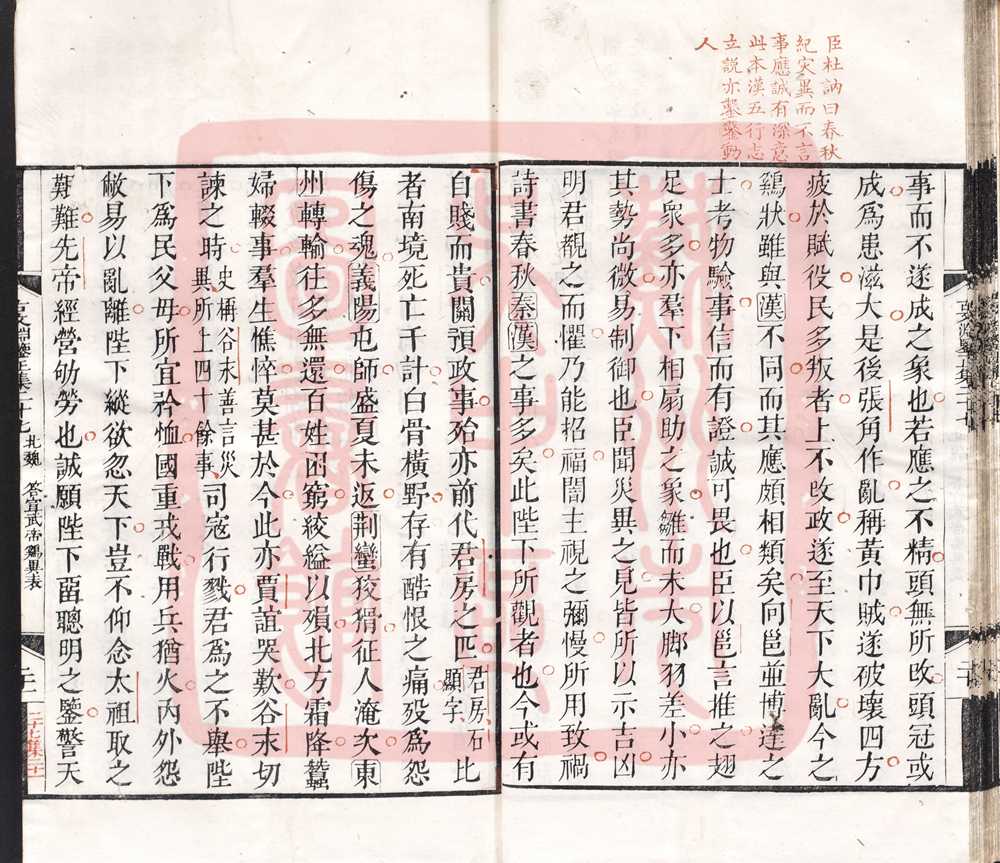 臣杜訥曰春秋
紀災異而不言
事應誠有深意
此本漢五行志
立說亦鑿鑿動
人
事而不遂成之象也若應之不精頭無所改頭冠或
成爲患滋大是後張角作亂稱黃巾賊遂破壞四方
疲於賦役民多叛者上不改政遂至天下大亂今之
鷄狀雖與漢不同而其應頗相類矣向邕並博達之
士考物驗事信而有證誠可畏也臣以邕言推之翅
足衆多亦羣下相扇助之象雛而未大脚羽差小亦
其勢尚微易制御也臣聞災異之見皆所以示吉凶
明君覩之而懼乃能招福闇主視之彌慢所用致禍
詩書春秋秦漢之事多矣此陛下所觀者也今或有
自賤而貴關預政事殆亦前代君房之匹君房石顯字比
者南境死亡千計白骨橫野存有酷恨之痛歿爲怨
傷之魂義陽屯師盛夏未返荆蠻狡猾征人淹次東
州轉輸往多無還百姓困窮絞縊以殞北方霜降蠶
婦輟事羣生憔悴莫甚於今此亦賈誼哭歎谷永切
諫之時史稱谷永善言災異所上四十餘事司寇行戮君爲之不舉陛
下爲民父母所宜矜恤國重戎戰用兵猶火內外怨
敝易以亂離陛下縱欲忽天下豈不仰念太祖取之
艱難先帝經營劬勞也誠願陛下留聰明之鑒警天
北魏 答宣武帝鷄異表